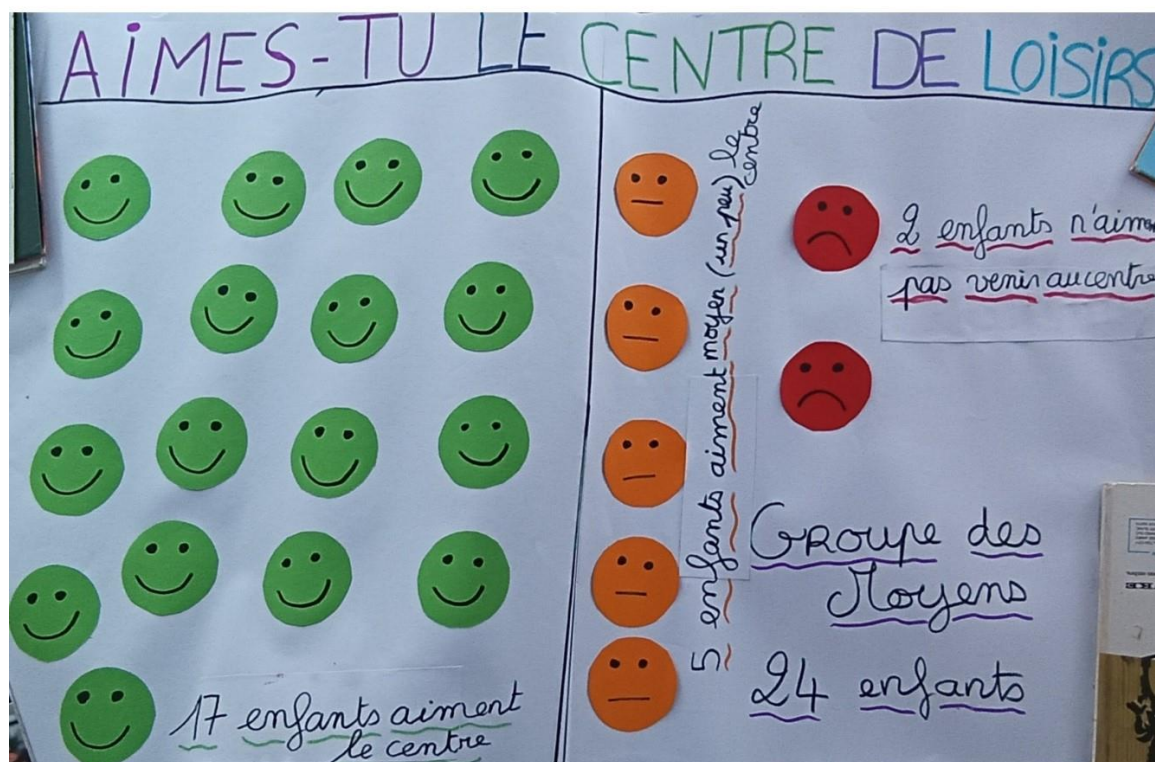 AiMES-TU LE CENTRE DE LOiSiRS
17 enfants aiment
le centre
5 enfants aiment moyen (un peu) le
centre
2 enfants n'aim
pas venir au centre
Groupe des
Moyens
24 enfants